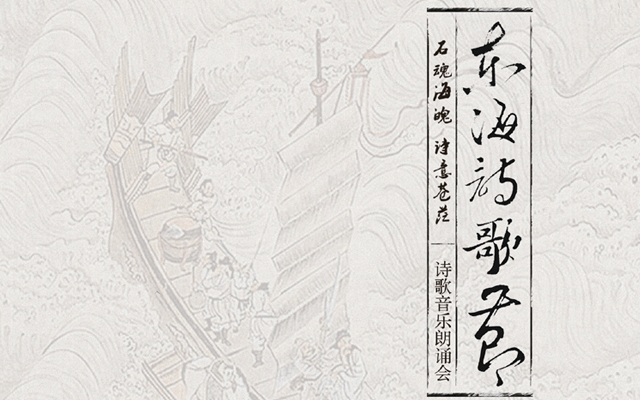 东海诗歌节
石魂海魄 诗意苍茫
诗歌音乐朗诵会